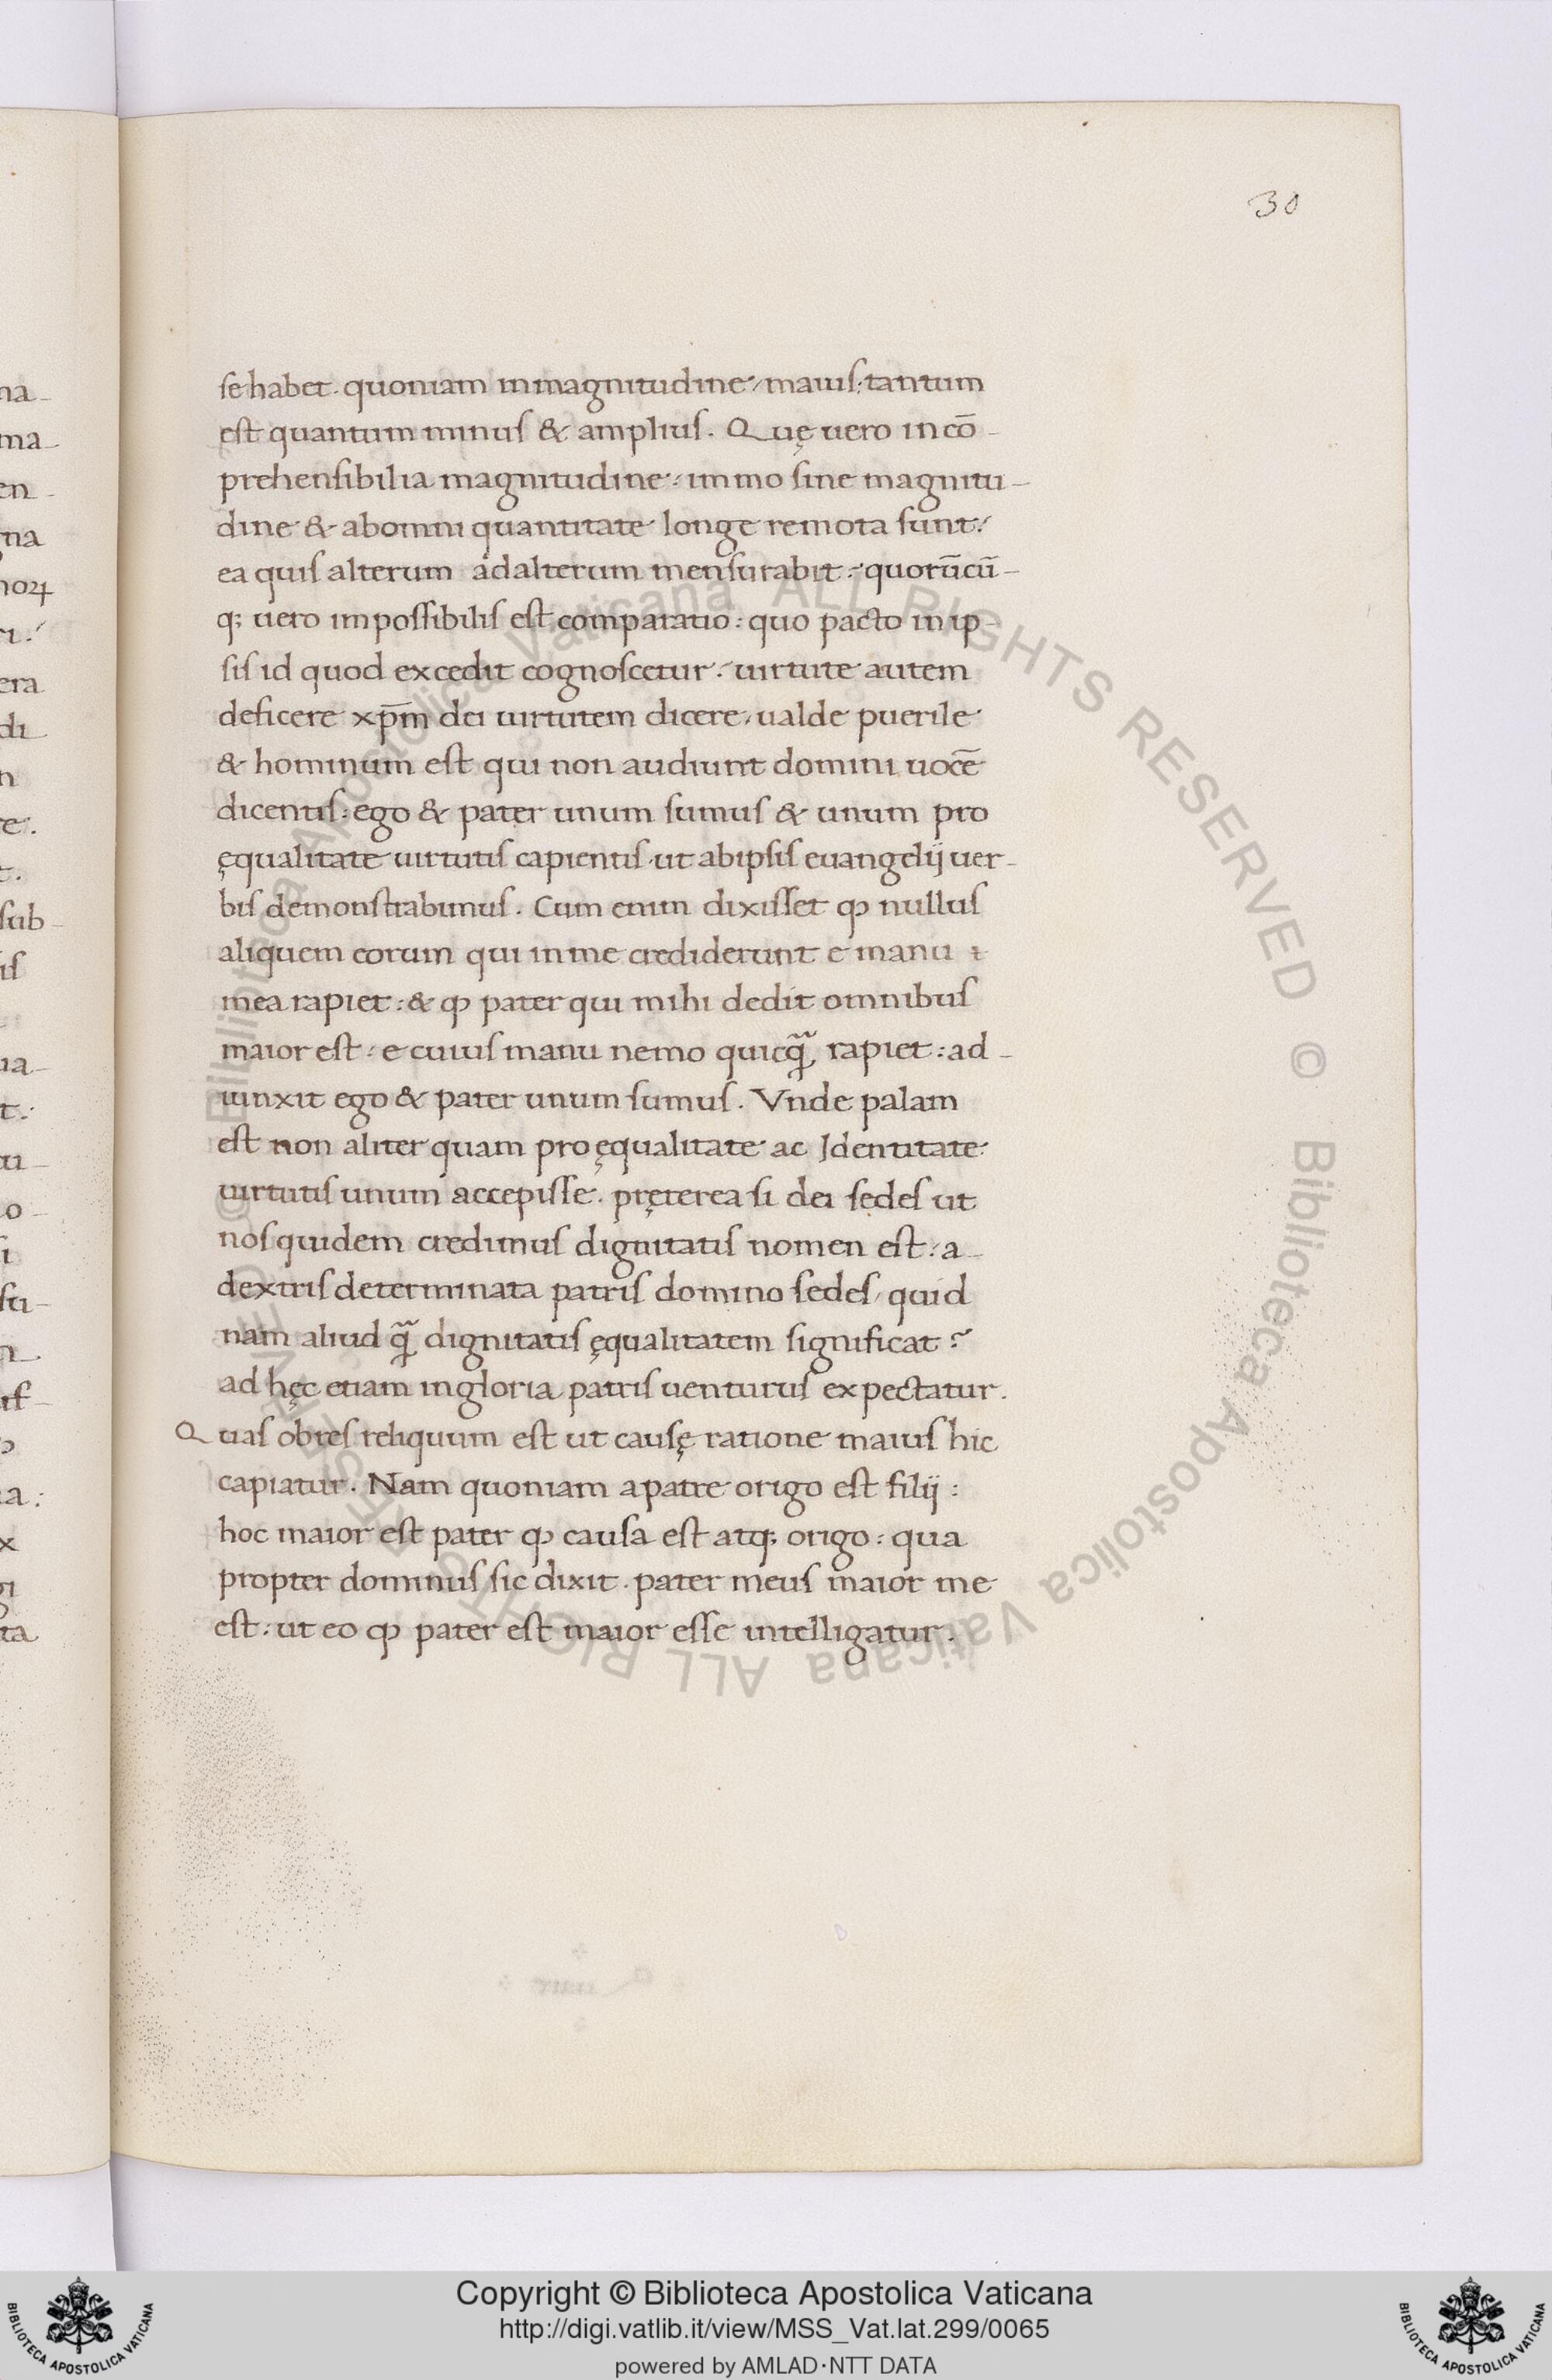 30
se habet. quoniam in magnitudine / maius: tantum
est quantum minus & amplius. Quę uero in cō-
prehensibilia magnitudine: immo sine magnitu-
dine & ab omni quantitate longe remota sunt:
ea quis alterum ad alterum mensurabit: quorūcū-
q; uero impossibilis est comparatio: quo pacto in ip-
sis id quod excedit cognoscetur: uirtute autem
deficere xp̄m dei uirtutem dicere, ualde puerile
& hominum est qui non audiunt domini uocē
dicentis: ego & pater unum sumus & unum pro
ęqualitate uirtutis capientis ut ab ipsis euangelij uer-
bis demonstrabimus. Cum enim dixisset ꝙ nullus
aliquem eorum qui in me crediderunt e manu
mea rapiet: & ꝙ pater qui mihi dedit omnibus
maior est: e cuius manu nemo quicq̃ rapiet: ad-
iunxit ego & pater unum sumus. Vnde palam
est non aliter quam pro ęqualitate ac Identitate
uirtutis unum accepisse. pręterea si dei sedes ut
nos quidem credimus dignitatis nomen est: a
dextris determinata patris domino sedes, quid
nam aliud q̃ dignitatis ęqualitatem significat?
ad hęc etiam in gloria patris uenturus expectatur.
Quas ob res reliquum est ut causę ratione maius hic
capiatur. Nam quoniam a patre origo est filij:
hoc maior est pater ꝙ causa est atq; origo: qua
propter dominus sic dixit. pater meus maior me
est: ut eo ꝙ pater est maior esse intelligatur.
na-
ma-
en-
na
noꝝ
era
di
n
re.
t.
sub-
is
ua-
t:
tu-
o-
i
sti-
n-
rs-
a:
x
gi
ta
© Biblioteca Apostolica Vaticana ALL RIGHTS RESERVED © Biblioteca Apostolica Vaticana ALL RIGHTS RESERVED
Copyright © Biblioteca Apostolica Vaticana
http://digi.vatlib.it/view/MSS_Vat.lat.299/0065
powered by AMLAD·NTT DATA
BIBLIOTECA APOSTOLICA VATICANA
BIBLIOTECA APOSTOLICA VATICANA